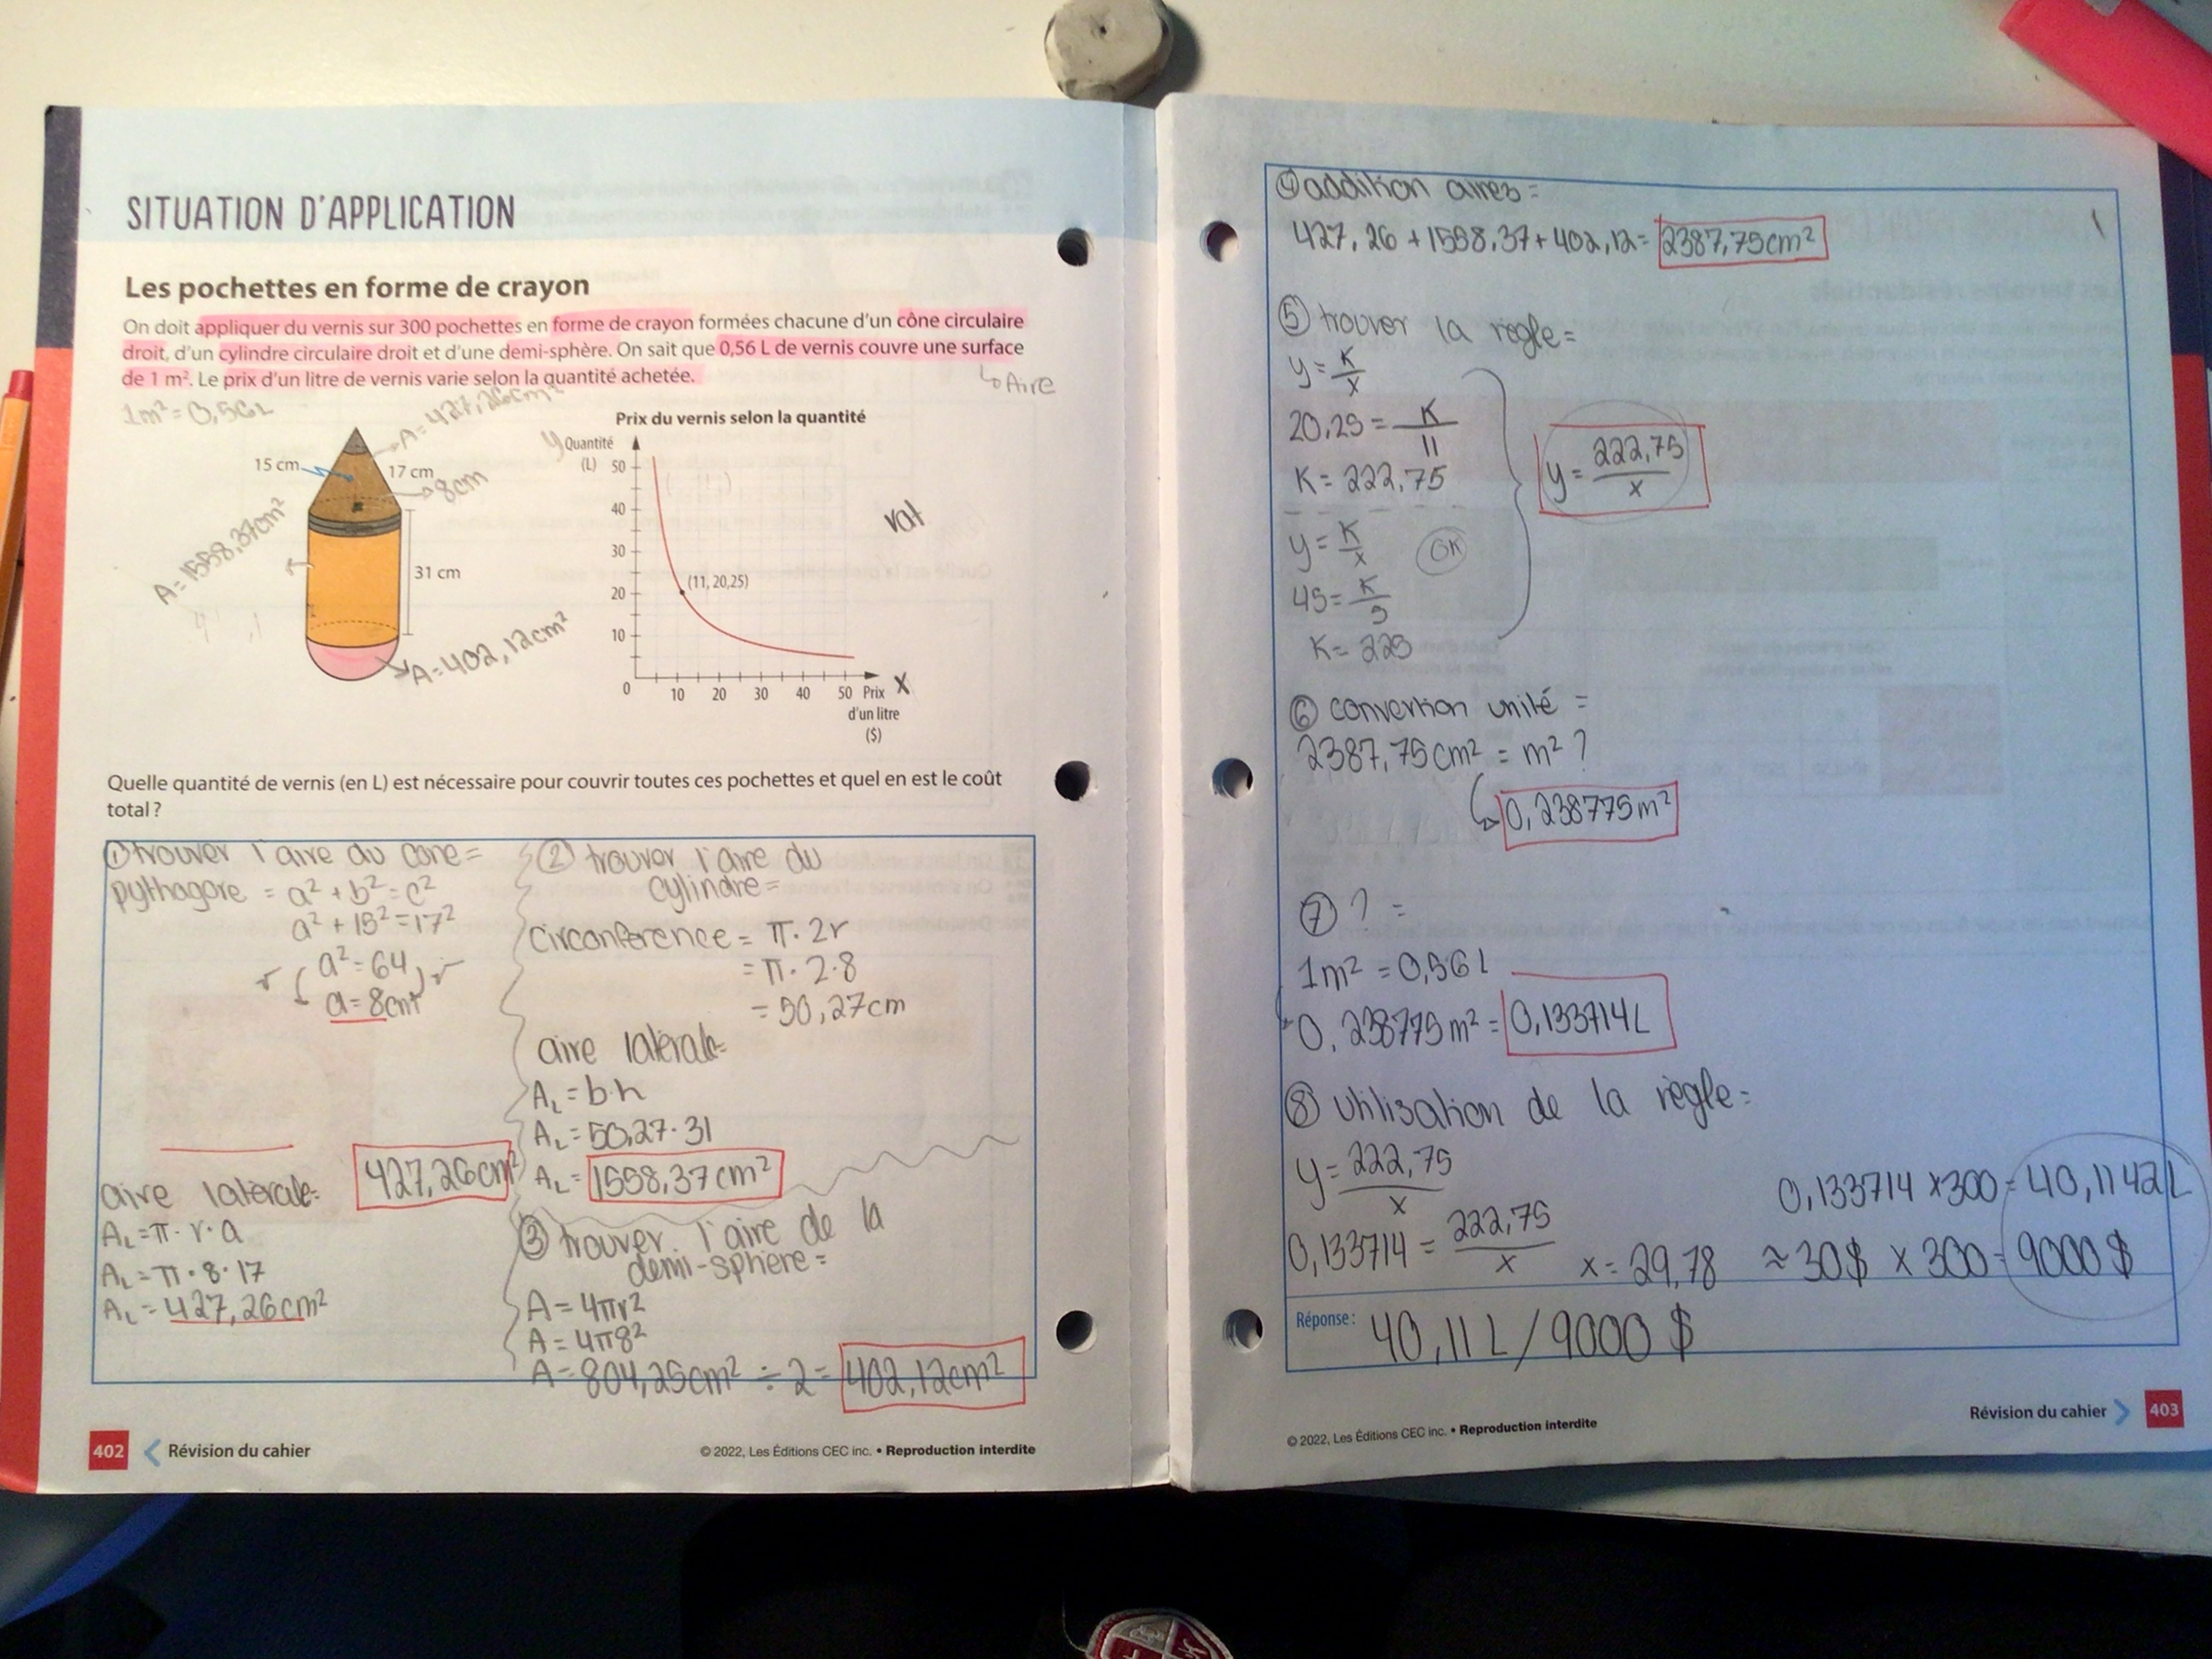 SITUATION D'APPLICATION
Les pochettes en forme de crayon
On doit appliquer du vernis sur 300 pochettes en forme de crayon formées chacune d'un cône circulaire
droit, d'un cylindre circulaire droit et d'une demi-sphère. On sait que 0,56 L de vernis couvre une surface
de 1 m². Le prix d'un litre de vernis varie selon la quantité achetée.
↳ Aire
1m² = 0,56L
A = 427,26cm²
15 cm
17 cm
8cm
A = 1558,37cm²
31 cm
A = 402,12cm²
Prix du vernis selon la quantité
y Quantité
(L) 50
40
30
20
10
0
(11, 20,25)
10 20 30 40 50 Prix X
d'un litre
($)
Quelle quantité de vernis (en L) est nécessaire pour couvrir toutes ces pochettes et quel en est le coût
total ?
① trouver l'aire du cone =
pythagore = a² + b² = c²
a² + 15² = 17²
a² = 64
a = 8cm
aire latérale =
427,26cm²
AL = π · r · a
AL = π · 8 · 17
AL = 427,26cm²
② trouver l'aire du
cylindre =
circonférence = π · 2r
= π · 2 · 8
= 50,27cm
aire latérale =
AL = b·h
AL = 50,27 · 31
AL = 1558,37cm²
③ trouver l'aire de la
demi-sphère =
A = 4πr²
A = 4π8²
A = 804,25cm² ÷ 2 = 402,12cm²
402 Révision du cahier
© 2022, Les Éditions CEC inc. • Reproduction interdite
④ addition aires =
427,26 + 1558,37 + 402,12 = 2387,75cm²
⑤ trouver la règle =
y = K/x
20,25 = K/11
K = 222,75
y = 222,75/x
y = K/x
OK
45 = K/5
K = 225
⑥ convertion unité =
2387,75cm² = m² ?
0,238775m²
⑦ ? =
1m² = 0,56 L
0,238775m² = 0,133714L
⑧ utilisation de la règle =
y = 222,75/x
0,133714 × 300 = 40,1142L
0,133714 = 222,75/x x = 29,78 ≈ 30$ × 300 = 9000$
Réponse : 40,11 L / 9000 $
© 2022, Les Éditions CEC inc. • Reproduction interdite
Révision du cahier 403